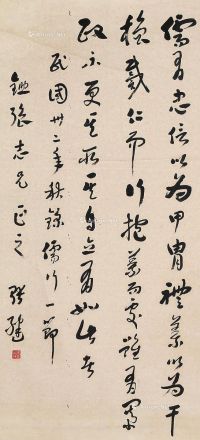 儒有忠信以為甲冑禮義以為干
櫓戴仁而行抱義而處雖有暴
政不更其所其自立有如此者
民國卅二年秋錄儒行一節
志兄正之 張繼